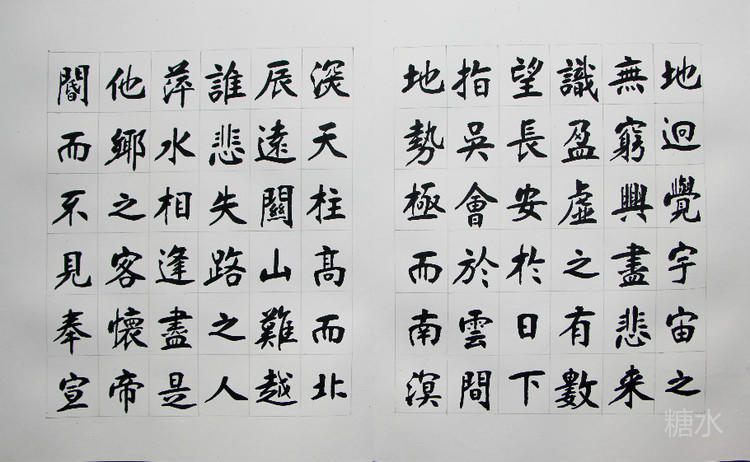 地迥覺宇宙之
無窮興盡悲来
識盈虛之有數
望長安於日下
指吳會於雲間
地勢極而南溟
深天柱高而北
辰遠關山難越
誰悲失路之人
萍水相逢盡是
他鄉之客懷帝
閽而不見奉宣
糖水